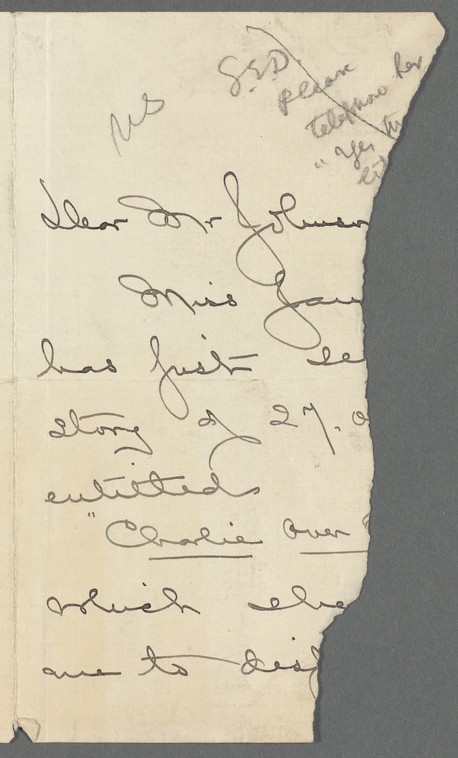 G.E.D.
Please
telephone her
"Yes
Dear Mr Johnson
Miss
has just
story of 27.
entitled
"Charlie over
which she
me to